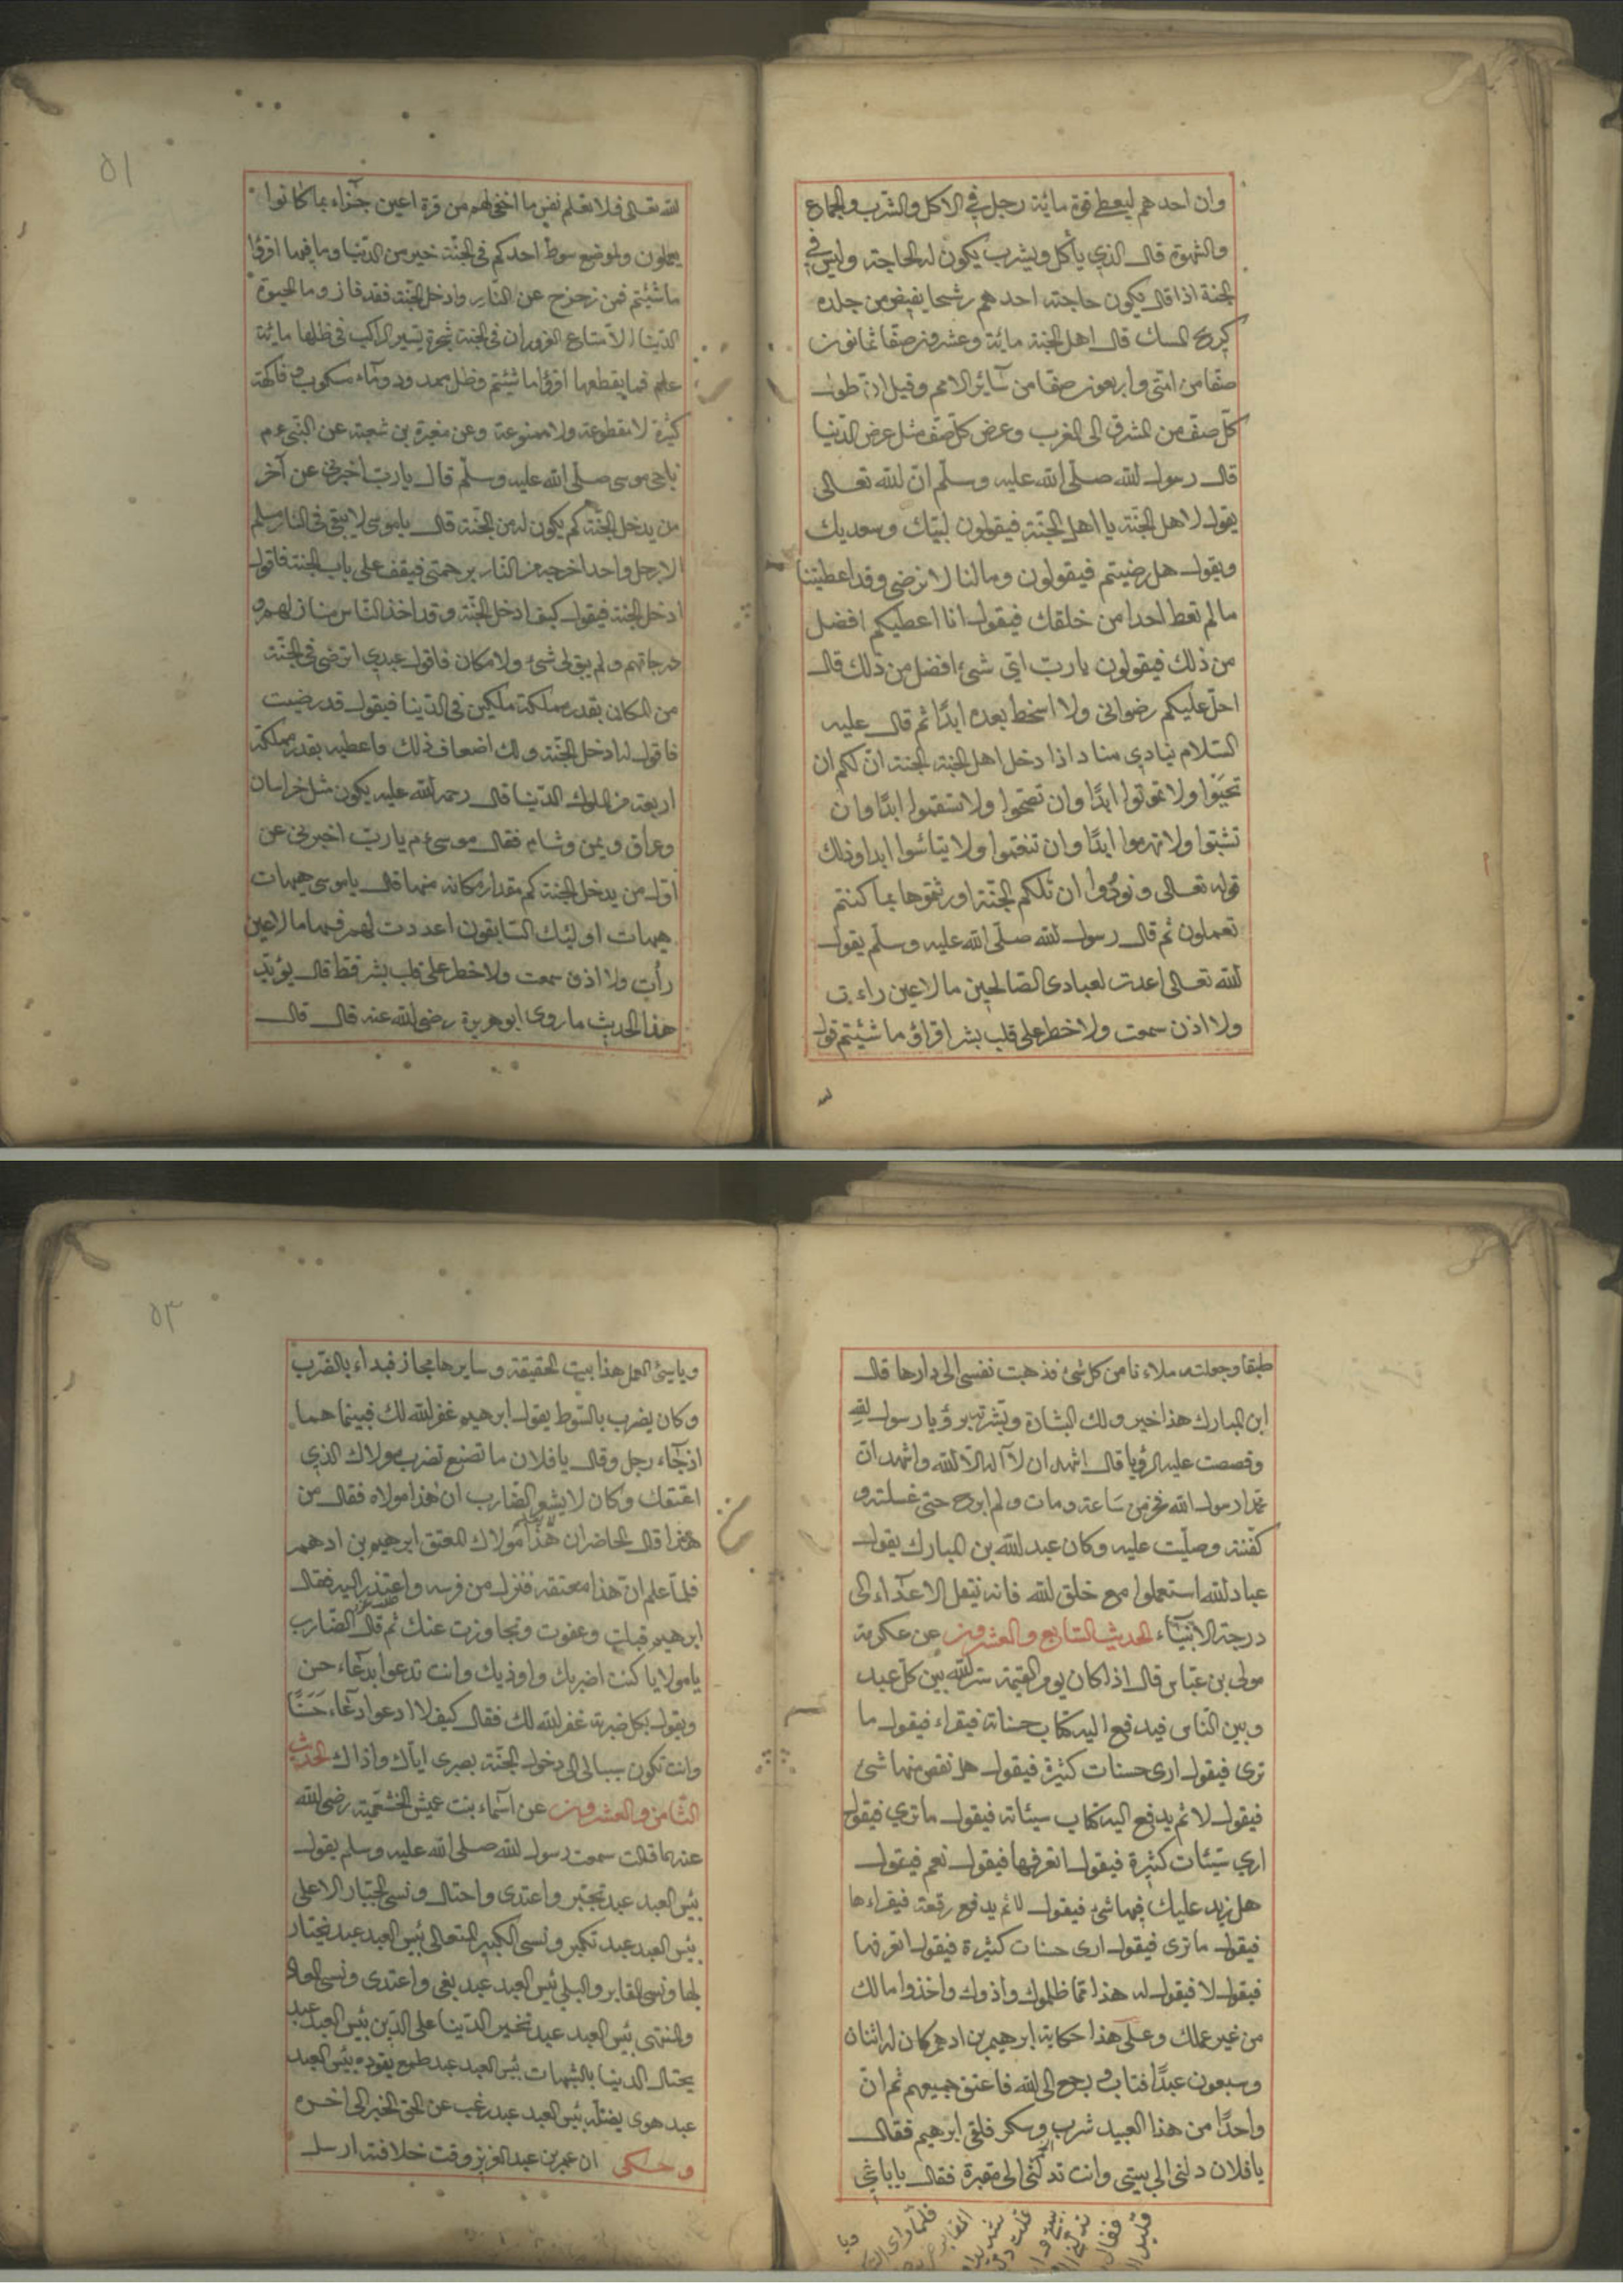 وان احدهم ليعطى قوة مائة رجل في الاكل والشرب والجماع
والشهوة قال الذي يأكل ويشرب يكون له الحاجة وليس في
الجنة اذا قال يكون حاجته احدهم رشحا يفيض من جلده
كريح المسك قال اهل الجنة مائة وعشرون صفا ثمانون
صفا من امتى واربعون صفا من سائر الامم وقيل ان طول
كل صف من المشرق الى المغرب وعرض كل صف مثل عرض الدنيا
قال رسول الله صلى الله عليه وسلم ان الله تعالى
يقول لاهل الجنة يا اهل الجنة فيقولون لبيك وسعديك
ويقول هل رضيتم فيقولون ومالنا لا نرضى وقد اعطيتنا
مالم تعط احدا من خلقك فيقول انا اعطيكم افضل
من ذلك فيقولون يا رب اي شئ افضل من ذلك قال
احل عليكم رضواني ولا اسخط بعده ابدا ثم قال عليه
السلام ينادي مناد اذا دخل اهل الجنة الجنة ان لكم ان
تحيوا ولا تموتوا ابدا وان تصحوا ولا تسقموا ابدا وان
تشبوا ولا تهرموا ابدا وان تنعموا ولا يتأسوا ابدا وذلك
قوله تعالى ونودوا ان تلكم الجنة اورثتموها بما كنتم
تعملون ثم قال رسول الله صلى الله عليه وسلم يقول
الله تعالى اعدت لعبادى الصالحين ما لا عين راءت
ولا اذن سمعت ولا خطر على قلب بشر اقراؤ ما شئيتم قول
٥١
الله تعالى فلا تعلم نفس ما اخفى لهم من قرة اعين جزاء بما كانوا
يعملون ولموضع سوط احدكم في الجنة خير من الدنيا وما فيها اقرؤا
ما شئيتم فمن زحزح عن النار وادخل الجنة فقد فاز وما الحيوة
الدنيا الا متاع الغرور ان في الجنة شجرة يسير الراكب في ظلها مائة
عام فما يقطعها اقرؤا ما شئيتم وظل ممدود وماء مسكوب وفاكهة
كثيرة لا مقطوعة ولا ممنوعة وعن مغيرة بن شعبة عن النبي عم
ناجى موسى صلى الله عليه وسلم قال يا رب اخبرني عن آخر
من يدخل الجنة كم يكون له من الجنة قال يا موسى لا يبقى في النار مسلم
الا رجل واحد اخرجه من النار برحمتي فيقف على باب الجنة فاقول
ادخل الجنة فيقول كيف ادخل الجنة وقد اخذ الناس منازلهم و
درجاتهم ولم يبق لى شئ ولا مكان فاقول عبدي اترضى في الجنة
من المكان بقدر مملكة ملكين في الدنيا فيقول قد رضيت
فاقول له ادخل الجنة ولك اضعاف ذلك واعطيه بقدر مملكة
اربعة من الملوك الدنيا قال رحمه الله عليه يكون مثل خراسان
وعراق ويمن وشام فقال موسى ءم يا رب اخبرني عن
اول من يدخل الجنة كم مقدار مكانه منها قال يا موسى هيهات
هيهات اولئك السابقون اعددت لهم فيها ما لا عين
رأت ولا اذن سمعت ولا خطر على قلب بشر فقط قال يؤيد
هذا الحديث ما روى ابو هريرة رضى الله عنه قال قال
طبقا وجعلته ملاءنا من كل شئ فذهبت نفسى الى دارها قال
ابن المبارك هذا خير ولك البشارة وبشرته برؤيا رسول الله
وقصصت عليه الرؤيا قال اشهد ان لا اله الا الله واشهد ان
محمدا رسول الله فخر من ساعته ومات ولم ابرح حتى غسلته و
كفنته وصليت عليه وكان عبد الله بن المبارك يقول
عباد الله استعملوا مع خلق الله فانه تنقل الاعداء الى
درجة الانبياء الحديث السابع والعشرون عن عكرمة
مولى بن عباس قال اذا كان يوم القيمة ستر الله بين كل عبد
وبين الناس فيدفع اليه كتاب حسناته فيقراء فيقول ما
ترى فيقول ارى حسنات كثيرة فيقول هل نقص منها شئ
فيقول لا ثم يدفع اليه كتاب سيئاته فيقول ما ترى فيقول
ارى سيئات كثيرة فيقول اتعرفها فيقول نعم فيقول
هل زيد عليك فيها شئ فيقول لا ثم يدفع رقعة فيقراءها
فيقول ما ترى فيقول ارى حسنات كثيرة فيقول اتعرفها
فيقول لا فيقول له هذا مما ظلموك واذوك واخذوا مالك
من غير عملك وعلى هذا حكاية ابرهيم بن ادهم كان له اثنان
وسبعون عبدا فتاب ورجع الى الله فاعتق جميعهم ثم ان
واحدا من هذا العبيد شرب وسكر فلقى ابرهيم فقال
يا فلان دلنى الى بيتى وانت تدلنى الى مقبرة فقال يا باغى
٥٣
ويا سئ العمل هذا بيت الحقيقة وسايرها مجاز فبداء بالضرب
وكان يضرب بالسوط يقول ابرهيم غفر الله لك فبينما هما
اذ جاء رجل وقال يا فلان ما تصنع تضرب مولاك الذي
اعتقك وكان لا يشعر الضارب ان هذا مولاه فقال من
هذا قال الحاضران هذا مولاك المعتق ابرهيم بن ادهم
فلما علم ان هذا معتقه فنزل من فرسه واعتذر اليه فقال
ابرهيم قبلت وعفوت وتجاوزت عنك ثم قال الضارب
يا مولايا كنت اضربك واوذيك وانت تدعوا بدعاء حسن
ويقول بكل ضربة غفر الله لك فقال كيف لا ادعوا دعاء حسنا
وانت تكون سببا لى الى دخول الجنة بصبرى اياك واذاك الحديث
الثامن والعشرون عن اسماء بنت عميس الخثعمية رضى الله
عنها قالت سمعت رسول الله صلى الله عليه وسلم يقول
بئس العبد عبد تجبر واعتدى واحتال ونسى الجبار الاعلى
بئس العبد عبد تكبر ونسى الكبير المتعالى بئس العبد عبد
لها ونسى المقابر والبلى بئس العبد عبد بغى واعتدى ونسى
والمنتهى بئس العبد عبد الدنيا على الدين بئس العبد عبد
يحتال الدنيا بالشبهات بئس العبد عبد طمع يقوده بئس العبد
عبد هوى يضله بئس العبد عبد رغب عن الحق الخبر الى اخره
وحكى ان عمر بن عبد العزيز وقت خلافته ارسل